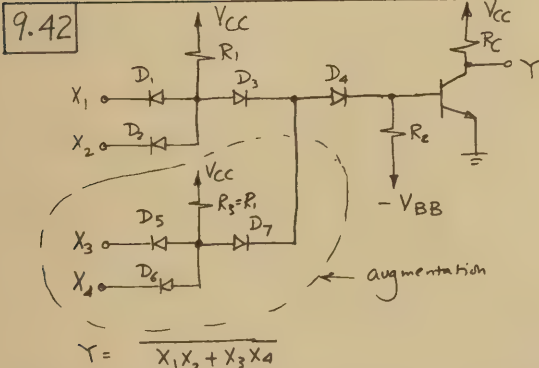 9.42
VCC
R1
VCC
RC
Y
X1 D1 D3 D4
X2 D2
R2
-VBB
VCC
R3=R1
X3 D5 D7
X4 D6
augmentation
Y = X1X2 + X3X4